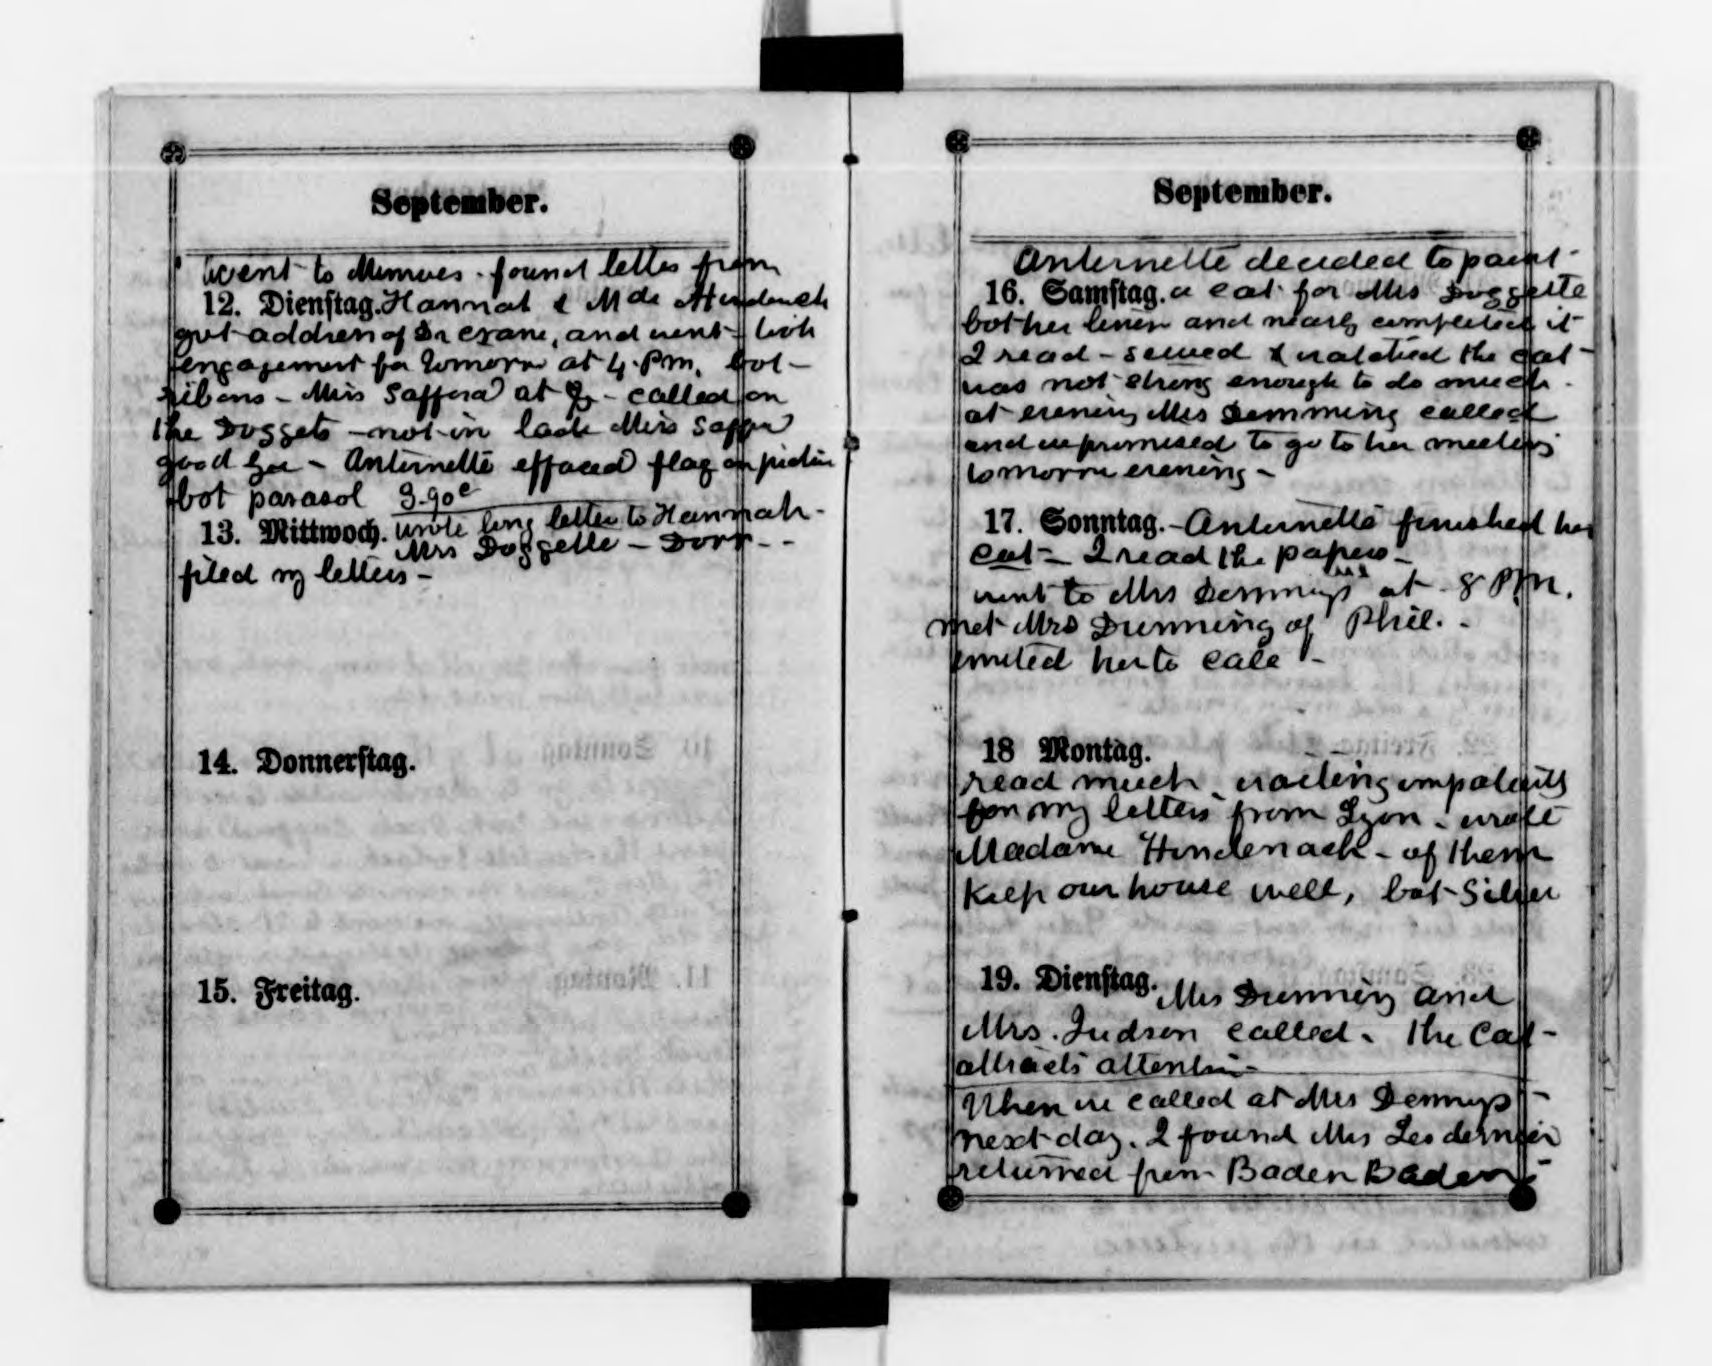 September.
Went to Munroes - found letter from
12. Dienſtag. Hannah & Mde Hindenach
got address of Dr Crane, and went - took
engagement for tomorrow at 4. P.m. bot -
ribons - Miss Safford at - called on
the Doggets - not in bade Miss Safford
good bye - Anternette effaced flag on picture
bot parasol 3.90c
13. Mittwoch. wrote long letter to Hannah -
Mrs Doggette - Dorr - -
filed my letters -
14. Donnerſtag.
15. Freitag.
September.
Anternette decided to paint -
16. Samſtag. a cat for Mrs Doggette
bot her linen and nearly completed it
I read - sewed & watched the cat -
was not strong enough to do much -
at evening Mrs Demming called
and we promised to go to her meeting
tomorrow evening -
17. Sonntag. - Anternette finished her
cat - I read the papers -
went to Mrs Demmings at 8 P.M.
met Mrs Dunning of Phil. -
invited her to call -
18 Montag.
read much, waiting impatiently
for my letters from Lyon - wrote
Madame Hindenach - of them
Keep our house well, bot Silver
19. Dienſtag. Mrs Dunning and
Mrs. Judson called - the Cat -
attracts attention -
When we called at Mrs Dennings -
next day. I found Mrs Lesdernier
returned from Baden Baden -